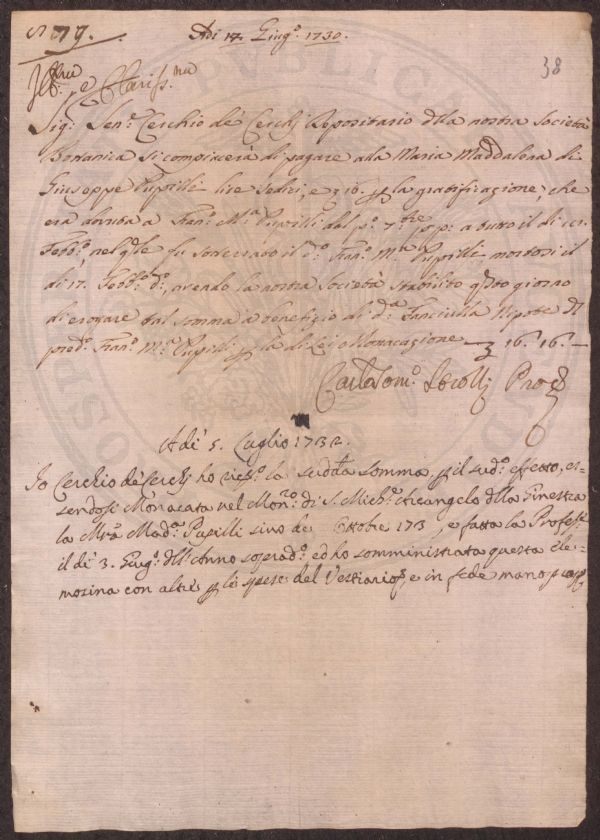 Adi 17. Giug.º 1730.
38
e Clariss.mo
Sig: Sen.e Cerchio de' Cerchj Depositario dlla nostra Società
Bottanica si compiacerà di pagare alla Maria Maddalena di
Giuseppe Pupilli lire Sedici, e 16. la gratificazione, che
era dovuta a Fran.º M.a Pupilli dal p.º 7.bre a tutto il dì 17.
Febb.º, nel qle fu sotterrato il d.º Fran.º M.a Pupilli mortosi il
dì 17. Febb.º d.º, avendo la nostra Società stabilito qsto giorno
di erogare tal somma a benefizio di d.a Fanciulla Nipote dl
pred.º Fran.º M.a Pupilli la di Lei Monacazione 16. 16. —
Adi 5. Luglio 1732.
Io Cerchio de Cerchj ho la sudd.ta somma il sud.º effetto, es-
sendosi Monacata nel Mon.º di S. Mich.e Arcangelo dlla Ginestra
la M.a Mad.a Pupilli sino de Ottobre 173 , e fatta la Profess.
il dì 3. Giug.º dll'Anno soprad.º ed ho somministrata questa ele-
mosina con altre le spese del Vestiario e in fede mano